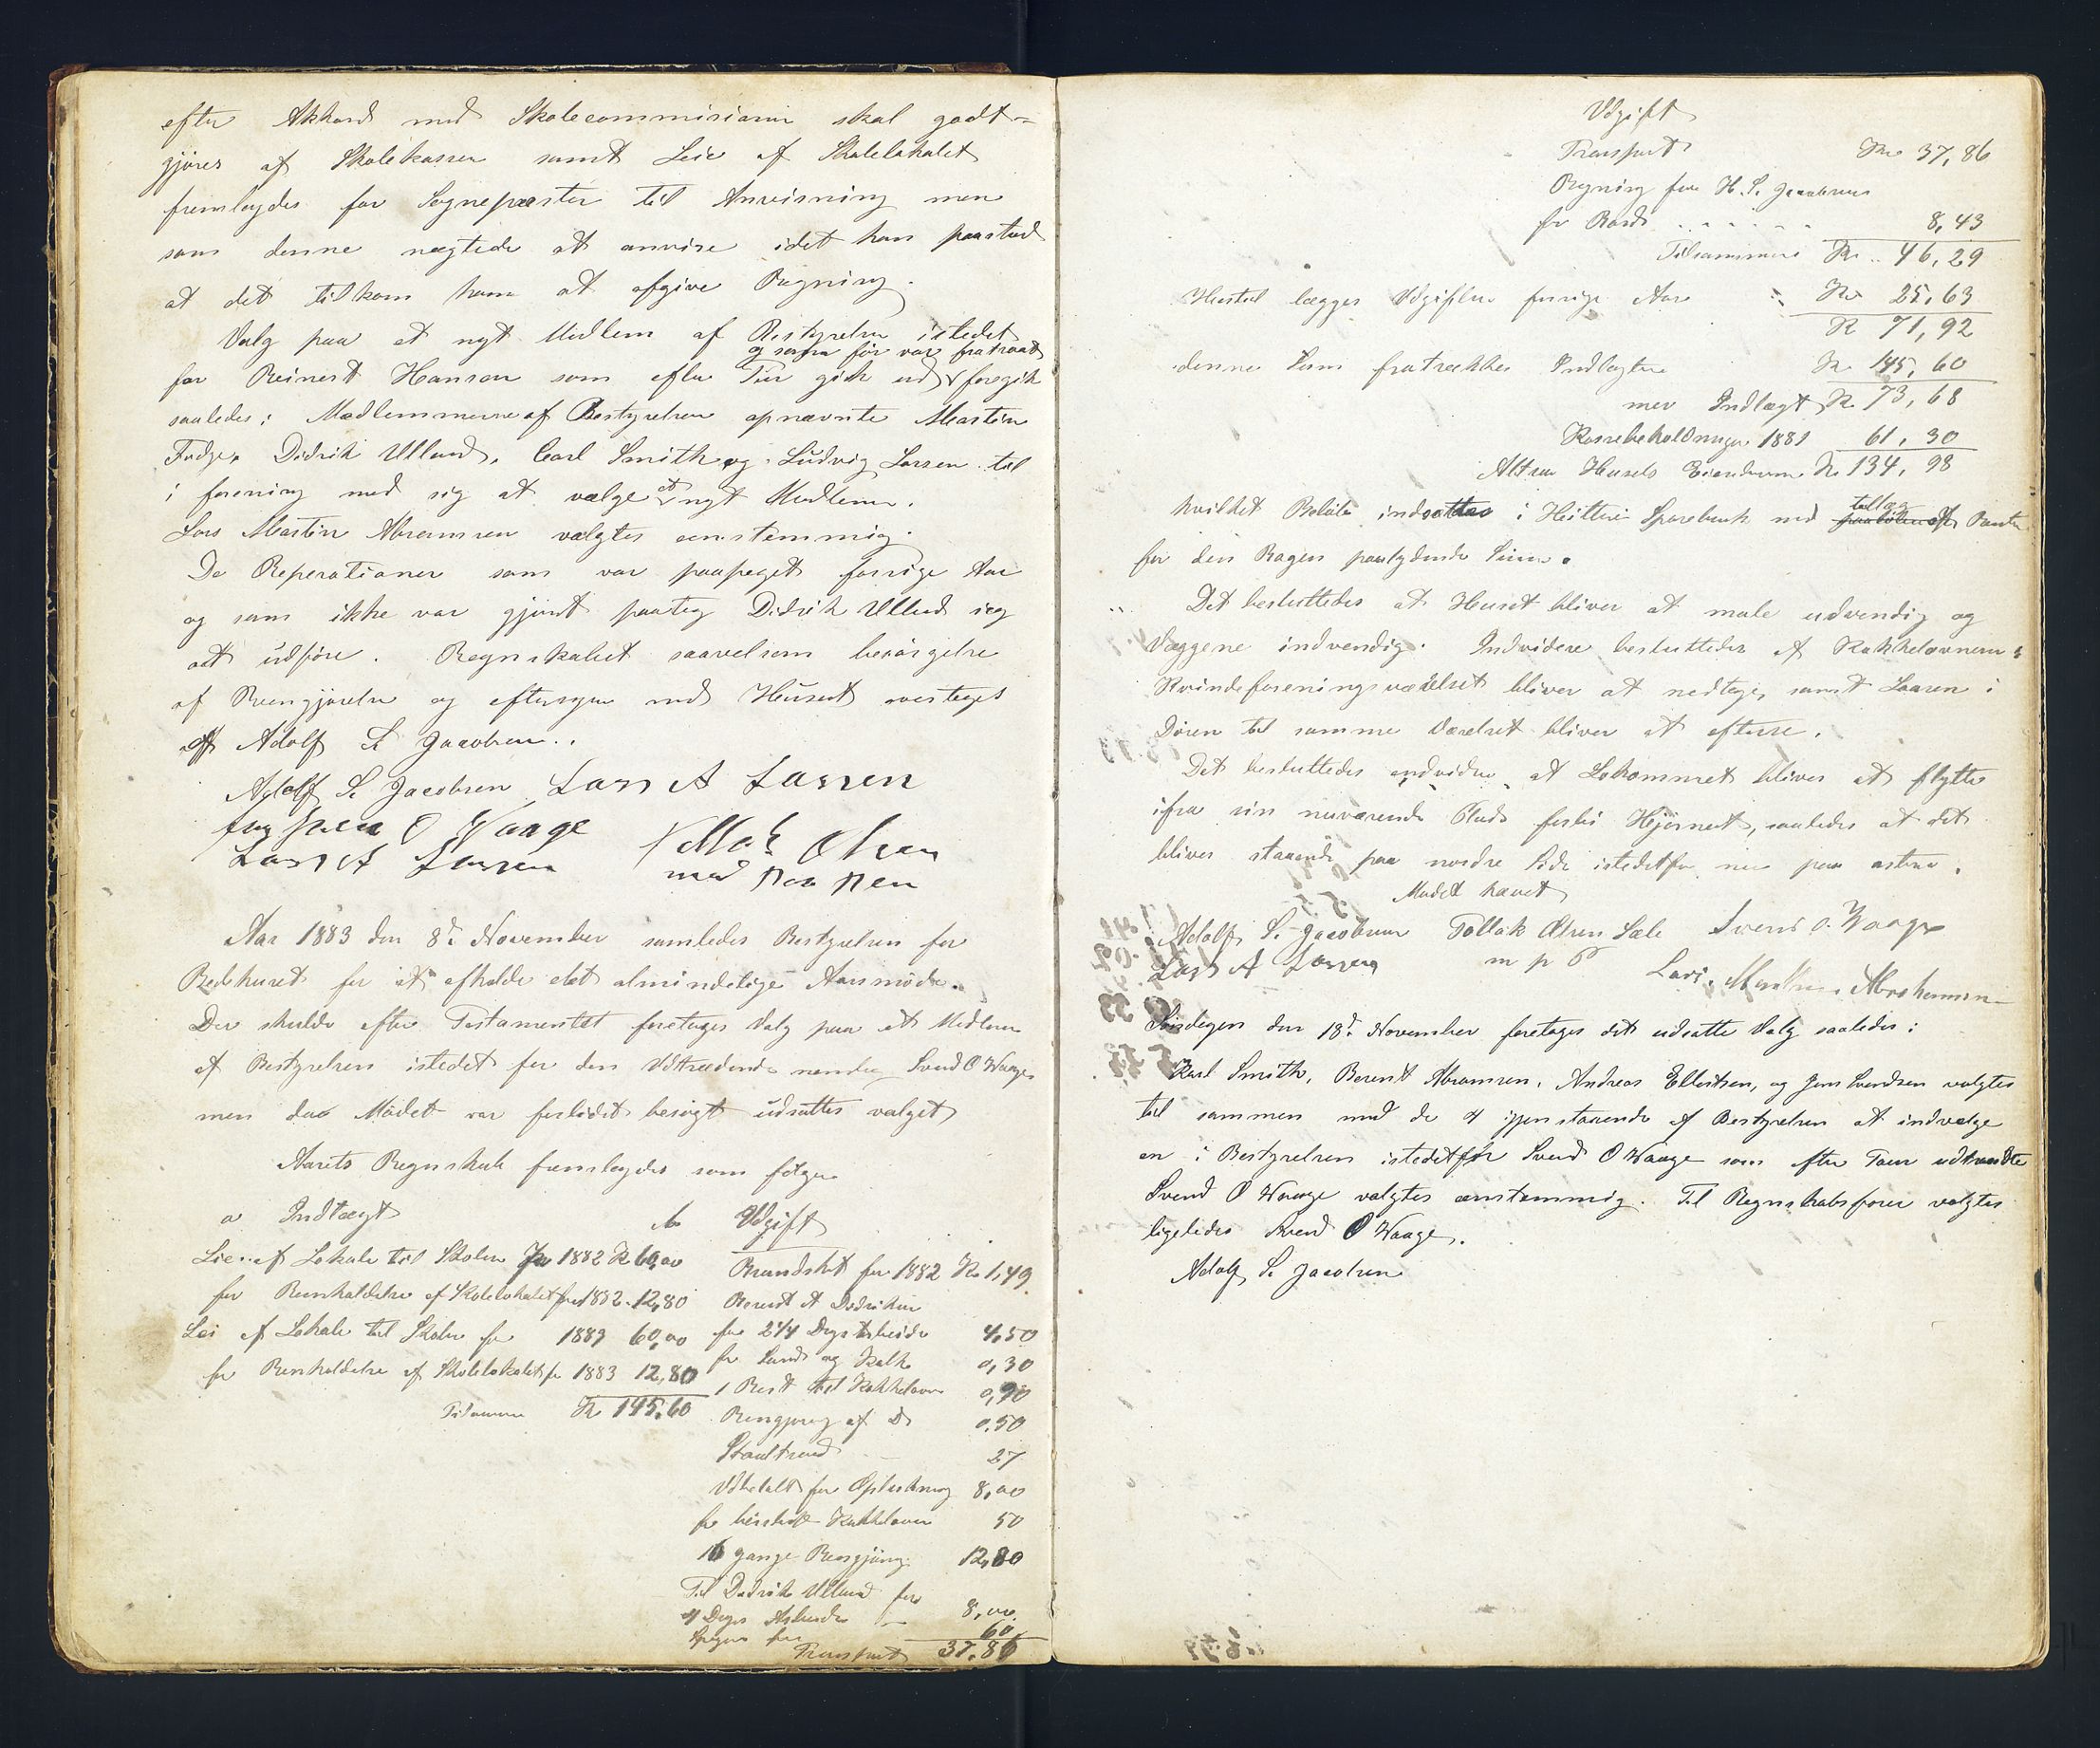 efter Akkord med Skolecommissionen skal godt-
gjøres af Skolekassen samt Leie af Skolelokalet
fremlagdes for Sognepresten til Anvisning men
som denne nægtede at anvise idet han paastod
at det tilkom ham at afgive Regning.
Valg paa et nyt Medlem af Bestyrelsen istedet
og som før var fratraadt
for Reinert Hansen som efter Tur gik ud foregik
saaledes: Medlemmerne af Bestyrelsen opnævnte Martin
Didrik Ulland, Carl Smith og Ludvig Larsen til
i forening med sig at vælge et nyt Medlem.
Lars Martin Abramsen valgtes eenstemmig.
De Reperationer som var paapeget forrige Aar
og som ikke var gjort paatog Didrik Ulland sig
at udføre. Regnskabet saavelsom besørgelse
af Rengjørelse og eftersyn med Huset overtoges
af Adolf S. Jacobsen.
Adolf S. Jacobsen Lars A Larsen
Svend O Waage Tollak Olsen
Lars A Larsen med Pen
Aar 1883 den 8de November samledes Bestyrelsen for
Bedehuset for at afholde det almindelige Aarsmøde.
Der skulde efter Testamentet foretages Valg paa et Medlem
af Bestyrelsen istedet for den Udtrædende nemlig Svend O Waage
men da Mødet var forlidet besøgt udsattes valget
Aarets Regnskab fremlagdes som følger
a Indtægt
b Udgift
Leie af Lokale til Skolen for 1882 K 60,00
for Renholdelse af Skolelokalet for 1882 12,80
Lei af Lokale til Skolen for 1883 60,00
for Renholdelse af Skolelokalet for 1883 12,80
Tilsammen Kr 145,60
Brandskat for 1882 Kr 1,49
Berent A Didriksen
for 2 1/4 Dags Arbeide 4,50
for Sand og Kalk 0,30
1 Rist til Kakkelovn 0,90
Rengjøring af Do 0,50
Staaltraad 27
Udbetalt for Opluskning 8,00
for Kakkelovn 50
16 gange Rengjøring 12,80
Til Didrik Ulland for
4 Dages Arbeide 8,00
for 60
Transport 37,86
Udgift
Transport Kr 37,86
Regning fra H. S. Jacobsen
for Bord 8,43
Tilsammen Kr 46,29
Hertil lægges Udgiften forrige Aar Kr 25,63
K 71,92
denne Sum fratrækkes Indtægten Kr 145,60
mer Indtægt K 73,68
Kassebeholdningen 1881 61,30
Altsaa Husets Eiendom Kr 134,98
hvilket Beløb indsættes i Hitterø Sparebank med tillæg af Renter
for den Bogen paalydende Sum.
Det besluttedes at Huset bliver at male udvendig og
Væggene indvendig. Endvidere besluttedes at Kakkelovnen i
Kvindeforeningsværelset bliver at nedtage, samt Laasen i
Døren til samme Værelset bliver at efterse.
Det besluttedes endvidere at Lokommet bliver at flytte
ifra sin nuværende Plads forbi Hjørnet, saaledes at det
bliver staaende paa nordre Side istedetfor nu paa østre.
Mødet hævet
Adolf S. Jacobsen Tollak Olsen Sæle Svend O. Waage
Lars A Larsen m p P Lars Martin Abrahamsen
Søndagen den 18de November foretoges det udsatte Valg saaledes:
Karl Smith, Berent Abramsen, Andreas Ellertsen, og Jens Svendsen valgtes
til sammen med de 4 igjenstaaende af Bestyrelsen at indvælge
en i Bestyrelsen istedetfor Svend O Waage som efter Tour udtraadte
Svend O Waage valgtes eenstemmig. Til Regnskabsfører valgtes
ligeledes Svend O Waage.
Adolf S. Jacobsen